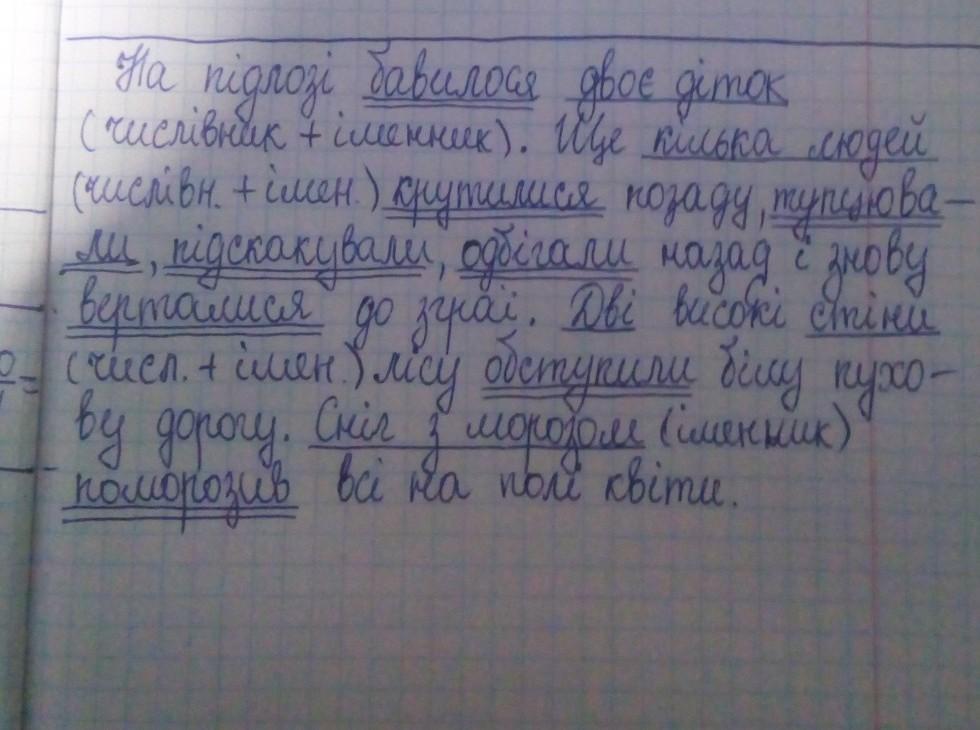 На підлозі бавилося двоє діток
(числівник + іменник). Ще кілька людей
(числівн. + імен.) крутилися позаду, тупцюва-
ли, підскакували, одбігали назад і знову
верталися до зграї. Дві високі стіни
(числ. + імен.) лісу обступили білу пухо-
ву дорогу. Сніг з морозом (іменник)
поморозив всі на полі квіти.